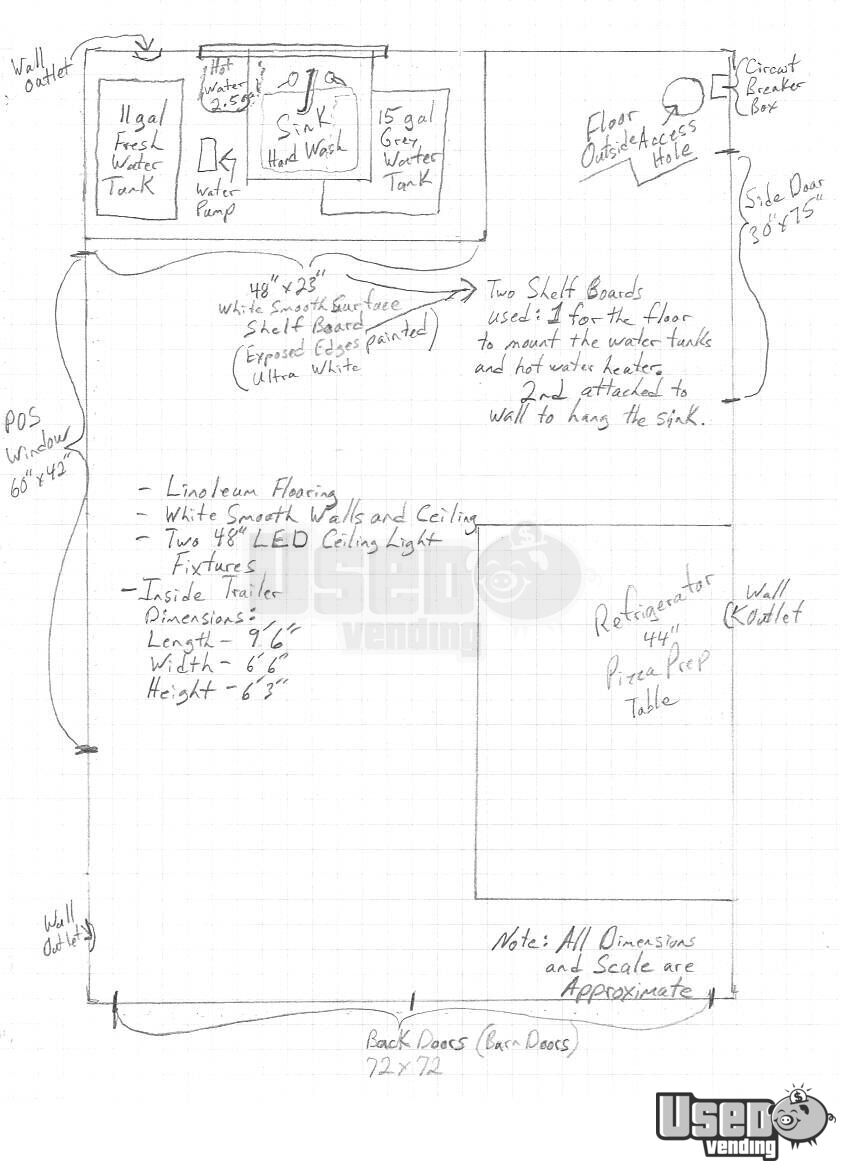 Wall
Outlet
Hot
Water
2.5 gal
Circuit
Breaker
Box
11 gal
Fresh
Water
Tank
Sink
Hand Wash
15 gal
Grey
Water
Tank
Water
Pump
Floor
Outside Access
Hole
Side Door
30" x 75"
48" x 23"
White Smooth Surface
Shelf Board
(Exposed Edges painted)
Ultra White
Two Shelf Boards
used: 1 for the floor
to mount the water tanks
and hot water heater.
2nd attached to
wall to hang the sink.
POS
Window
60" x 42"
- Linoleum Flooring
- White Smooth Walls and Ceiling
- Two 48" LED Ceiling Light
Fixtures
- Inside Trailer
Dimensions:
Length - 9'6"
Width - 6'6"
Height - 6'3"
Used
vending
Refrigerator
44"
Pizza Prep
Table
Wall
Outlet
Wall
Outlet
Note: All Dimensions
and Scale are
Approximate
Back Doors (Barn Doors)
72 x 72
Used
vending